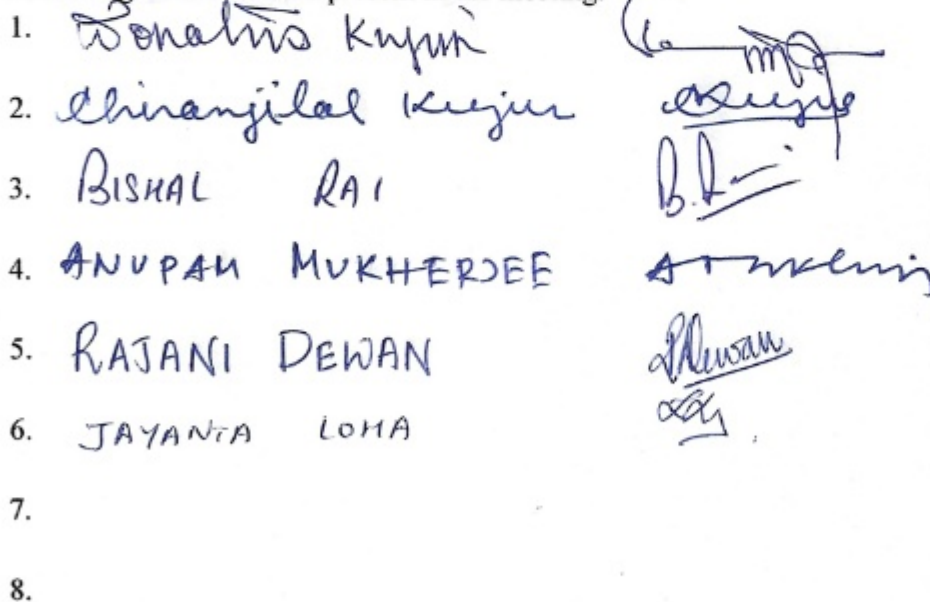 1. Donatus Kujur
2. Chiranjilal Kujur Ckujur
3. BISHAL RAI B. Rai
4. ANUPAM MUKHERJEE
5. RAJANI DEWAN RDewan
6. JAYANTA LOHA
7.
8.